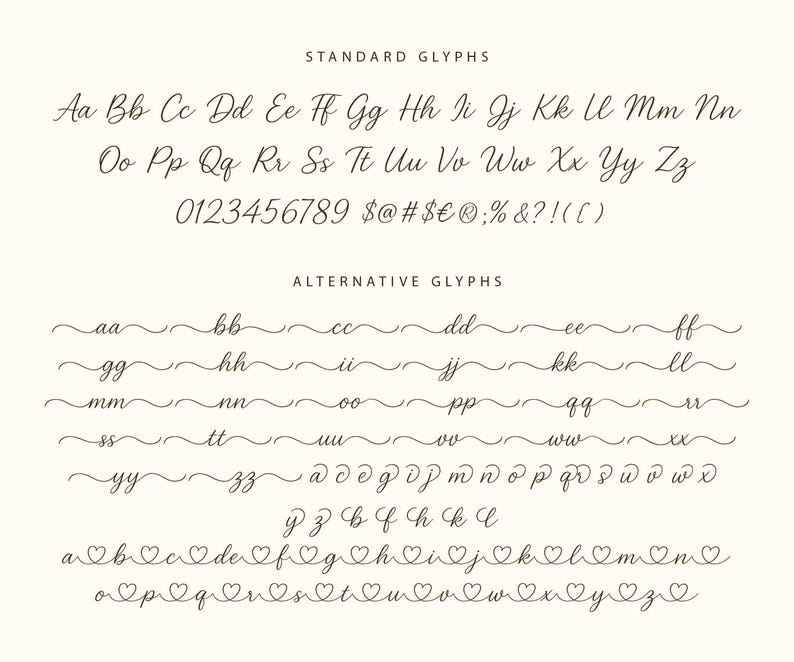 STANDARD GLYPHS
Aa Bb Cc Dd Ee Ff Gg Hh Ii Jj Kk Ll Mm Nn
Oo Pp Qq Rr Ss Tt Uu Vv Ww Xx Yy Zz
0123456789 $@#$€®;%&?!([)
ALTERNATIVE GLYPHS
aa bb cc dd ee ff
gg hh ii jj kk ll
mm nn oo pp qq rr
ss tt uu vv ww xx
yy zz a c e g i j m n o p q r s u v w x
y z b f h k l
a b c de f g h i j k l m n
o p q r s t u v w x y z